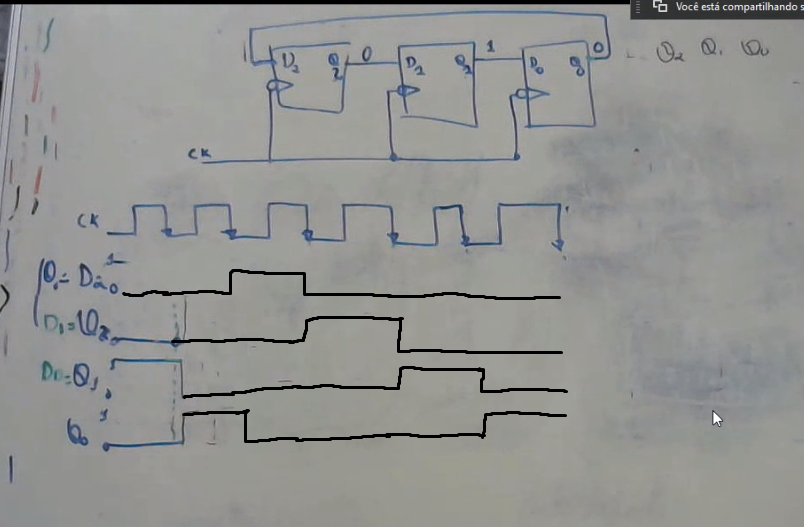 Você está compartilhando s
1 D₂ Q₂ 0 D₁ Q₁ 1 D₀ Q₀ 0 Q₂ Q₁ Q₀
CK
CK
1
D₂ 0
D₁=Q₂
D₀=Q₁ 1
0
Q₀ 1